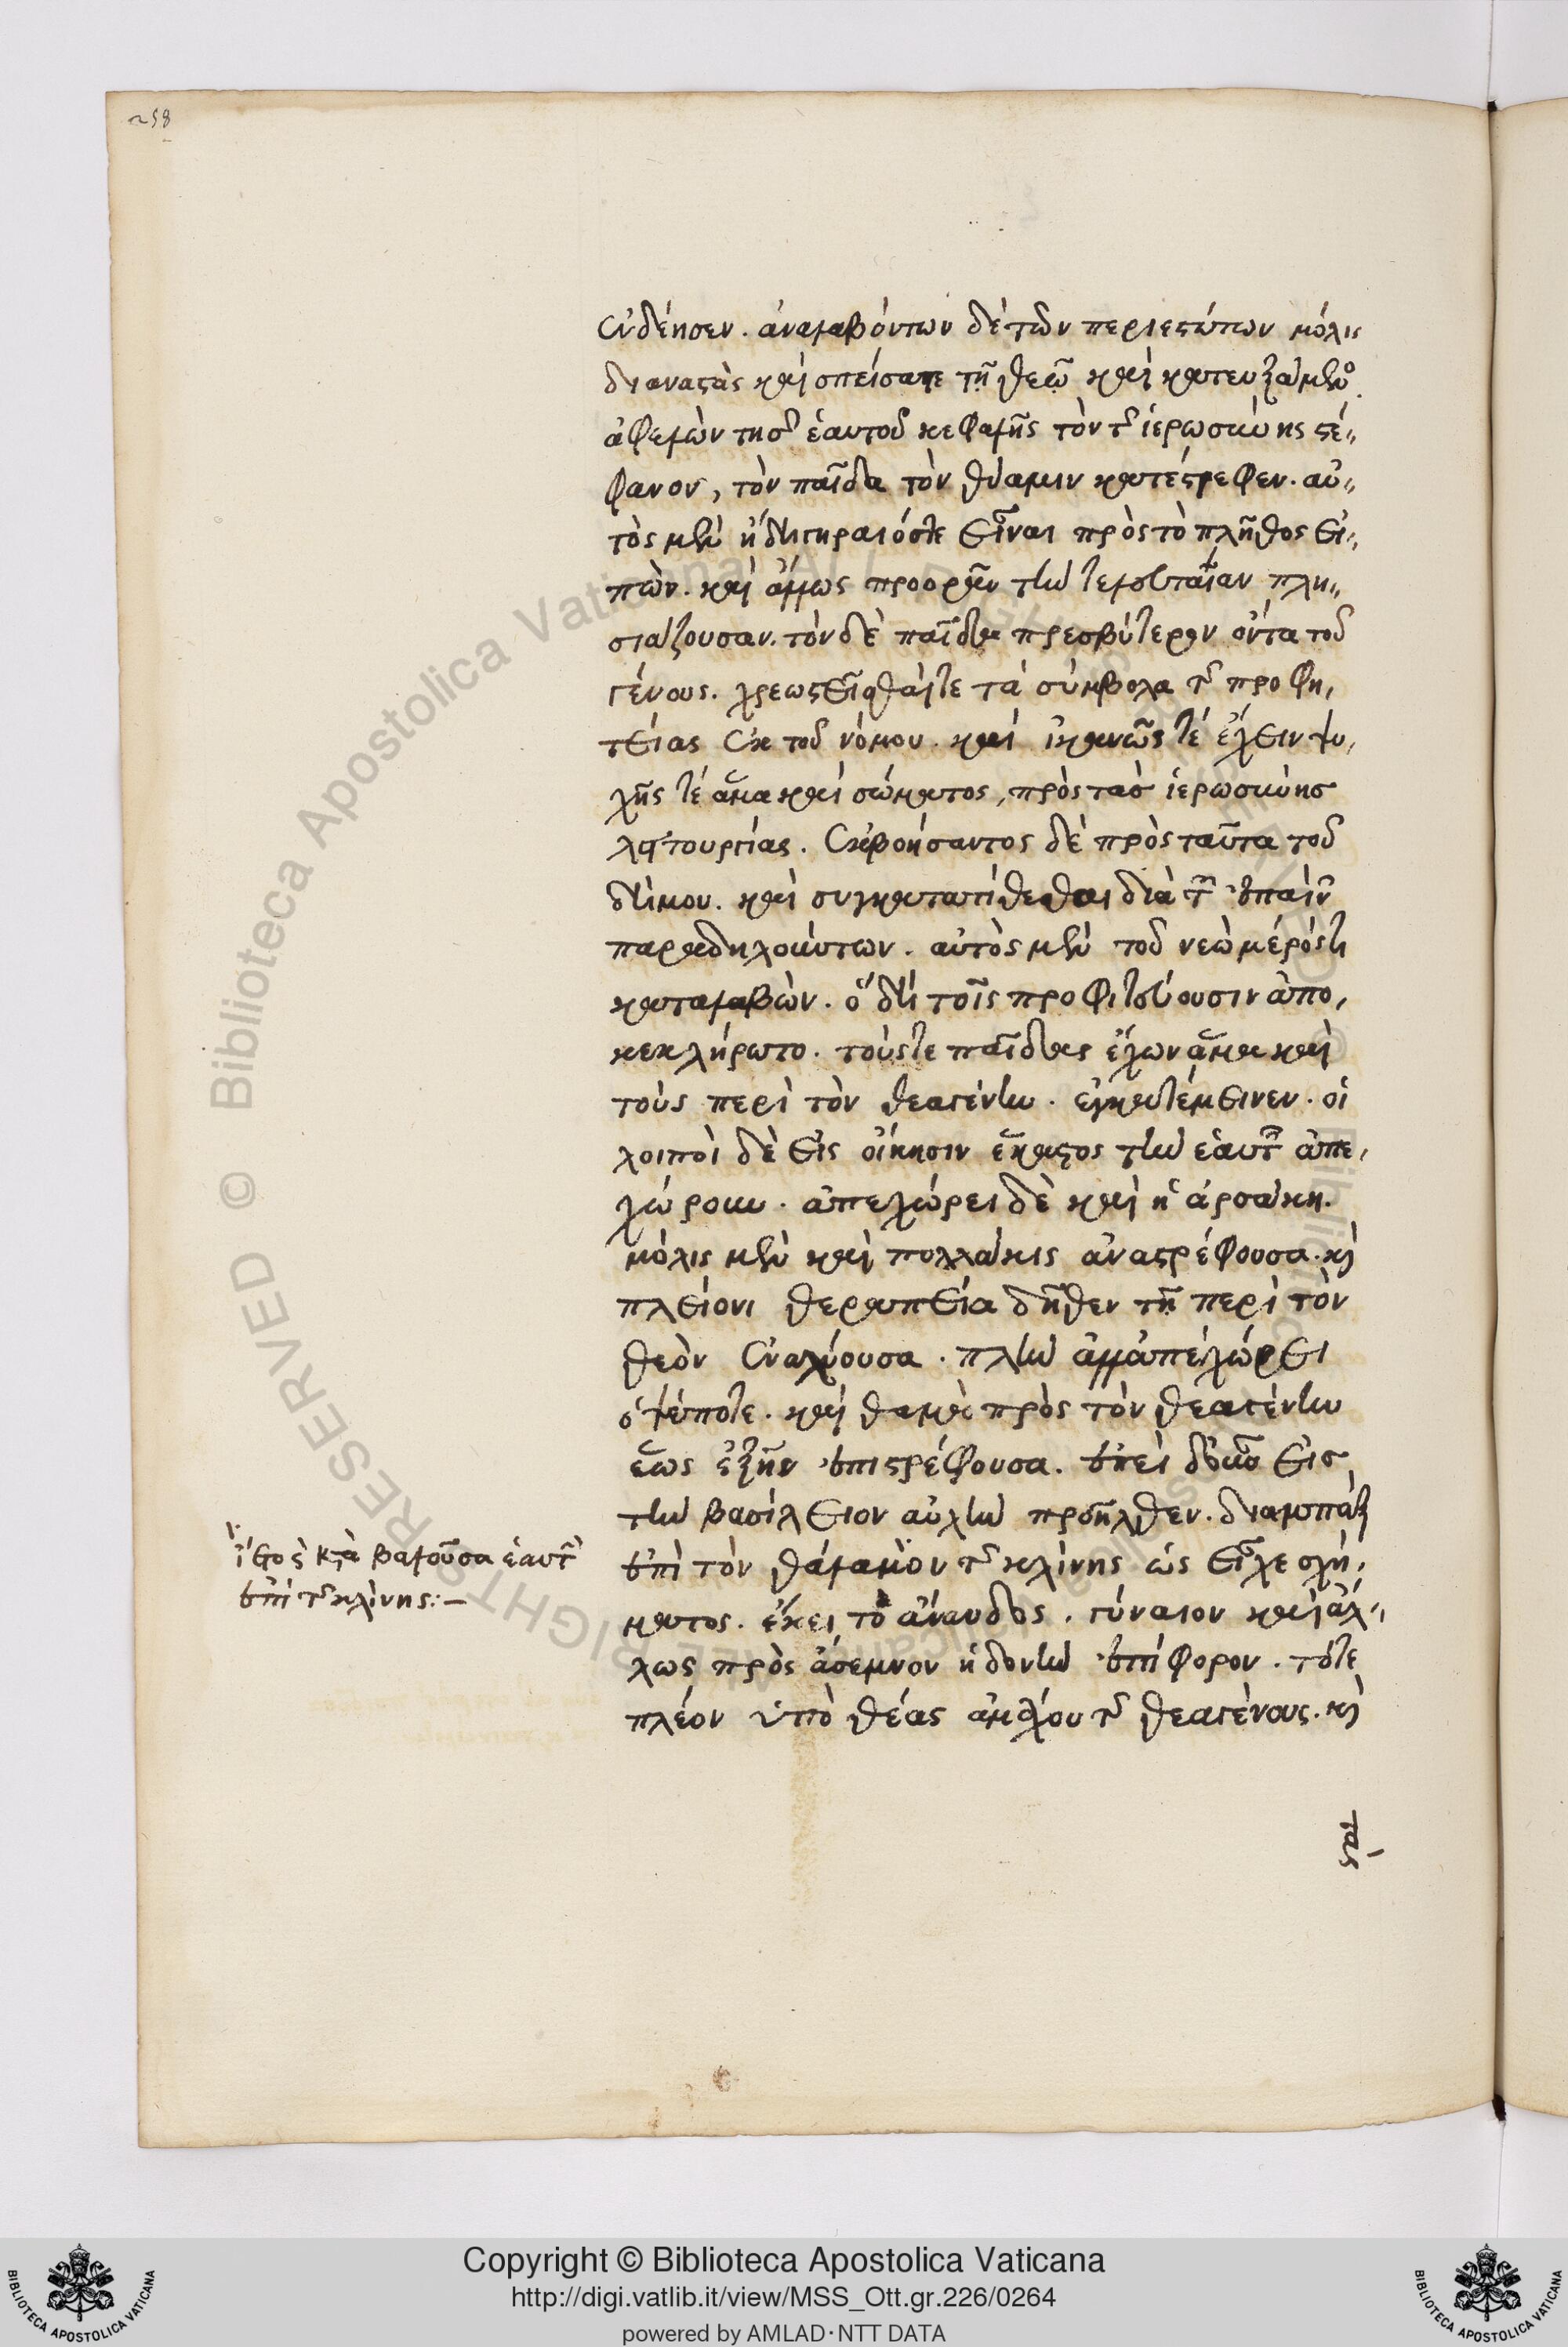 258
ἐνδέησεν. ἀναλαβόντων δὲ τῶν περιεστώτων μόλις
διαναστὰς καὶ σπείσας τε τῇ θεῷ καὶ κατευξάμενος
ἀφελὼν τῆς ἑαυτοῦ κεφαλῆς τὸν τῆς ἱερωσύνης στέ-
φανον, τὸν παῖδα τὸν θύαμιν κατέστρεφεν. αὐ-
τὸς μὲν ἤδη γηραιός τε εἶναι πρὸς τὸ πλῆθος εἰ-
πών. καὶ ἄλλως προορᾶν τὴν τελευταίαν πλη-
σιάζουσαν. τὸν δὲ παῖδα πρεσβύτερον ὄντα τοῦ
γένους. χρεωστεῖσθαί τε τὰ σύμβολα τῆς προφη-
τείας ἐκ τοῦ νόμου. καὶ ἱκανῶς τὲ ἔχειν ψυ-
χῆς τέ ἅμα καὶ σώματος, πρὸς τὰς ἱερωσύνης
λειτουργίας. ἐκβοήσαντος δὲ πρὸς ταῦτα τοῦ
δήμου. καὶ συγκατατίθεσθαι διὰ τῶν ἐπαίνων
παραδηλούντων. αὐτὸς μὲν τοῦ νεὼ μέρός τι
καταλαβών. ὃ δὴ τοῖς προφητεύουσιν ἀπο-
κεκλήρωτο. τούς τε παῖδας ἔχων ἅμα καὶ
τοὺς περὶ τὸν θεαγένην. ἐγκατέμεινεν. οἱ
λοιποὶ δὲ εἰς οἴκησιν ἕκαστος τὴν ἑαυτῶν ἀπε-
χώρουν. ἀπεχώρει δὲ καὶ ἡ ἀρσάκη.
μόλις μὲν καὶ πολλάκις ἀναστρέφουσα. καὶ
πλείονι θεραπεία δῆθεν τῇ περὶ τὸν
θεὸν ἐνσχύουσα. πλὴν ἀλλ' ἀπεχώρει
ὀψέποτε. καὶ θαμὰ πρὸς τὸν θεαγένην
ἕως ἐξῆν ἐπιστρέφουσα. ἐπεὶ δ' οὖν εἰς
τὴν βασίλειον αὐλὴν προῆλθεν. διαμπὰξ
ἐπὶ τὸν θάλαμον τῆς κλίνης ὡς εἶχε σχή-
ματος. ἔκειτο ἄναυδος. γύναιον καὶ ἄλ-
λως πρὸς ἄσεμνον ἡδονὴν ἐπίφορον. τότε
πλέον ὑπὸ θέας ἀμάχου τῆς θεαγένους. καὶ
ἐπὶ τῆς κλίνης:—
τὰς
Copyright © Biblioteca Apostolica Vaticana
http://digi.vatlib.it/view/MSS_Ott.gr.226/0264
powered by AMLAD·NTT DATA